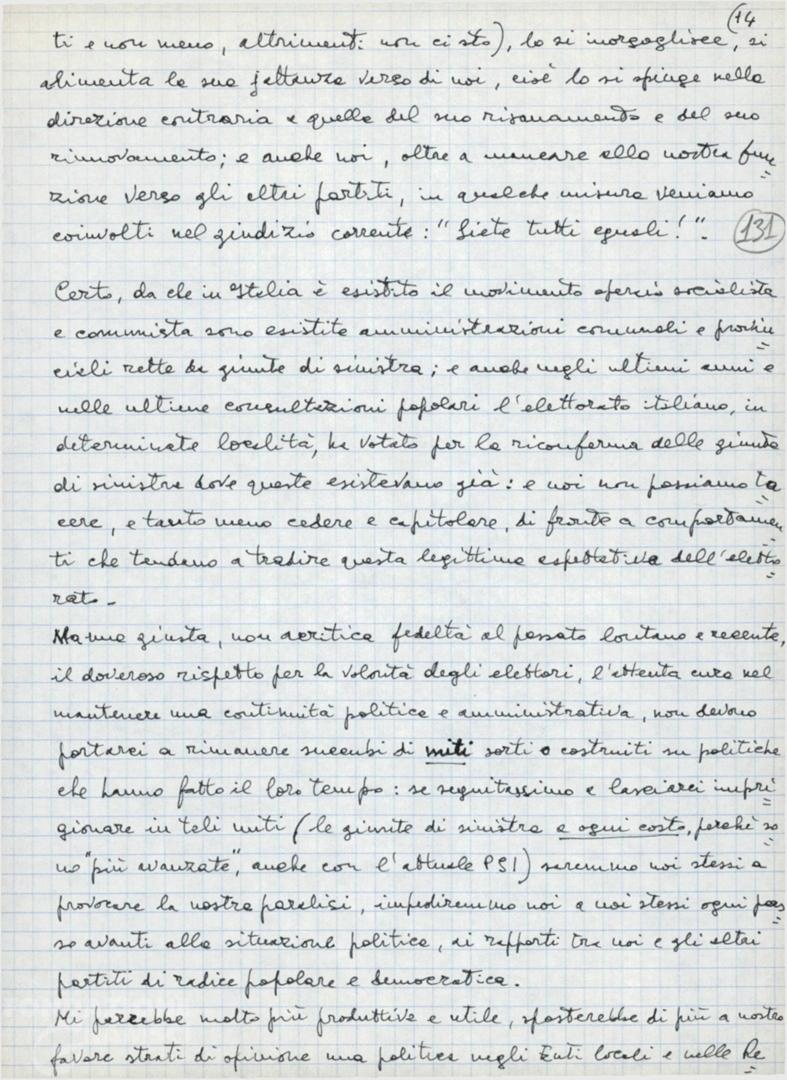 (14
ti e non meno, altrimenti non ci sto), lo si inorgoglisce, si
alimenta la sua jattanza verso di noi, cioè lo si spinge nella
direzione contraria a quella del suo risanamento e del suo
rinnovamento; e anche noi, oltre a mancare alla nostra fun=
zione verso gli altri partiti, in qualche misura veniamo
coinvolti nel giudizio corrente: "Siete tutti eguali!".
131
Certo, da che in Italia è esistito il movimento operaio socialista
e comunista sono esistite amministrazioni comunali e provin=
ciali rette da giunte di sinistra; e anche negli ultimi anni e
nelle ultime consultazioni popolari l'elettorato italiano, in
determinate località, ha votato per la riconferma delle giunte
di sinistra dove queste esistevano già: e noi non possiamo ta=
cere, e tanto meno cedere e capitolare, di fronte a comportamen=
ti che tendano a tradire questa legittima aspettativa dell'eletto=
rato -
Ma una giusta, non acritica fedeltà al passato lontano e recente,
il doveroso rispetto per la volontà degli elettori, l'attenta cura nel
mantenere una continuità politica e amministrativa, non devono
portarci a rimanere succubi di miti sorti o costruiti su politiche
che hanno fatto il loro tempo: se seguitassimo a lasciarci impri=
gionare in tali miti (le giunte di sinistra a ogni costo, perché so=
no "più avanzate", anche con l'attuale PSI) saremmo noi stessi a
provocare la nostra paralisi, impediremmo noi a noi stessi ogni pas=
so avanti alla situazione politica, ai rapporti tra noi e gli altri
partiti di radice popolare e democratica.
Mi parrebbe molto più produttiva e utile, sposterebbe di più a nostro
favore strati di opinione una politica negli Enti locali e nelle Re=